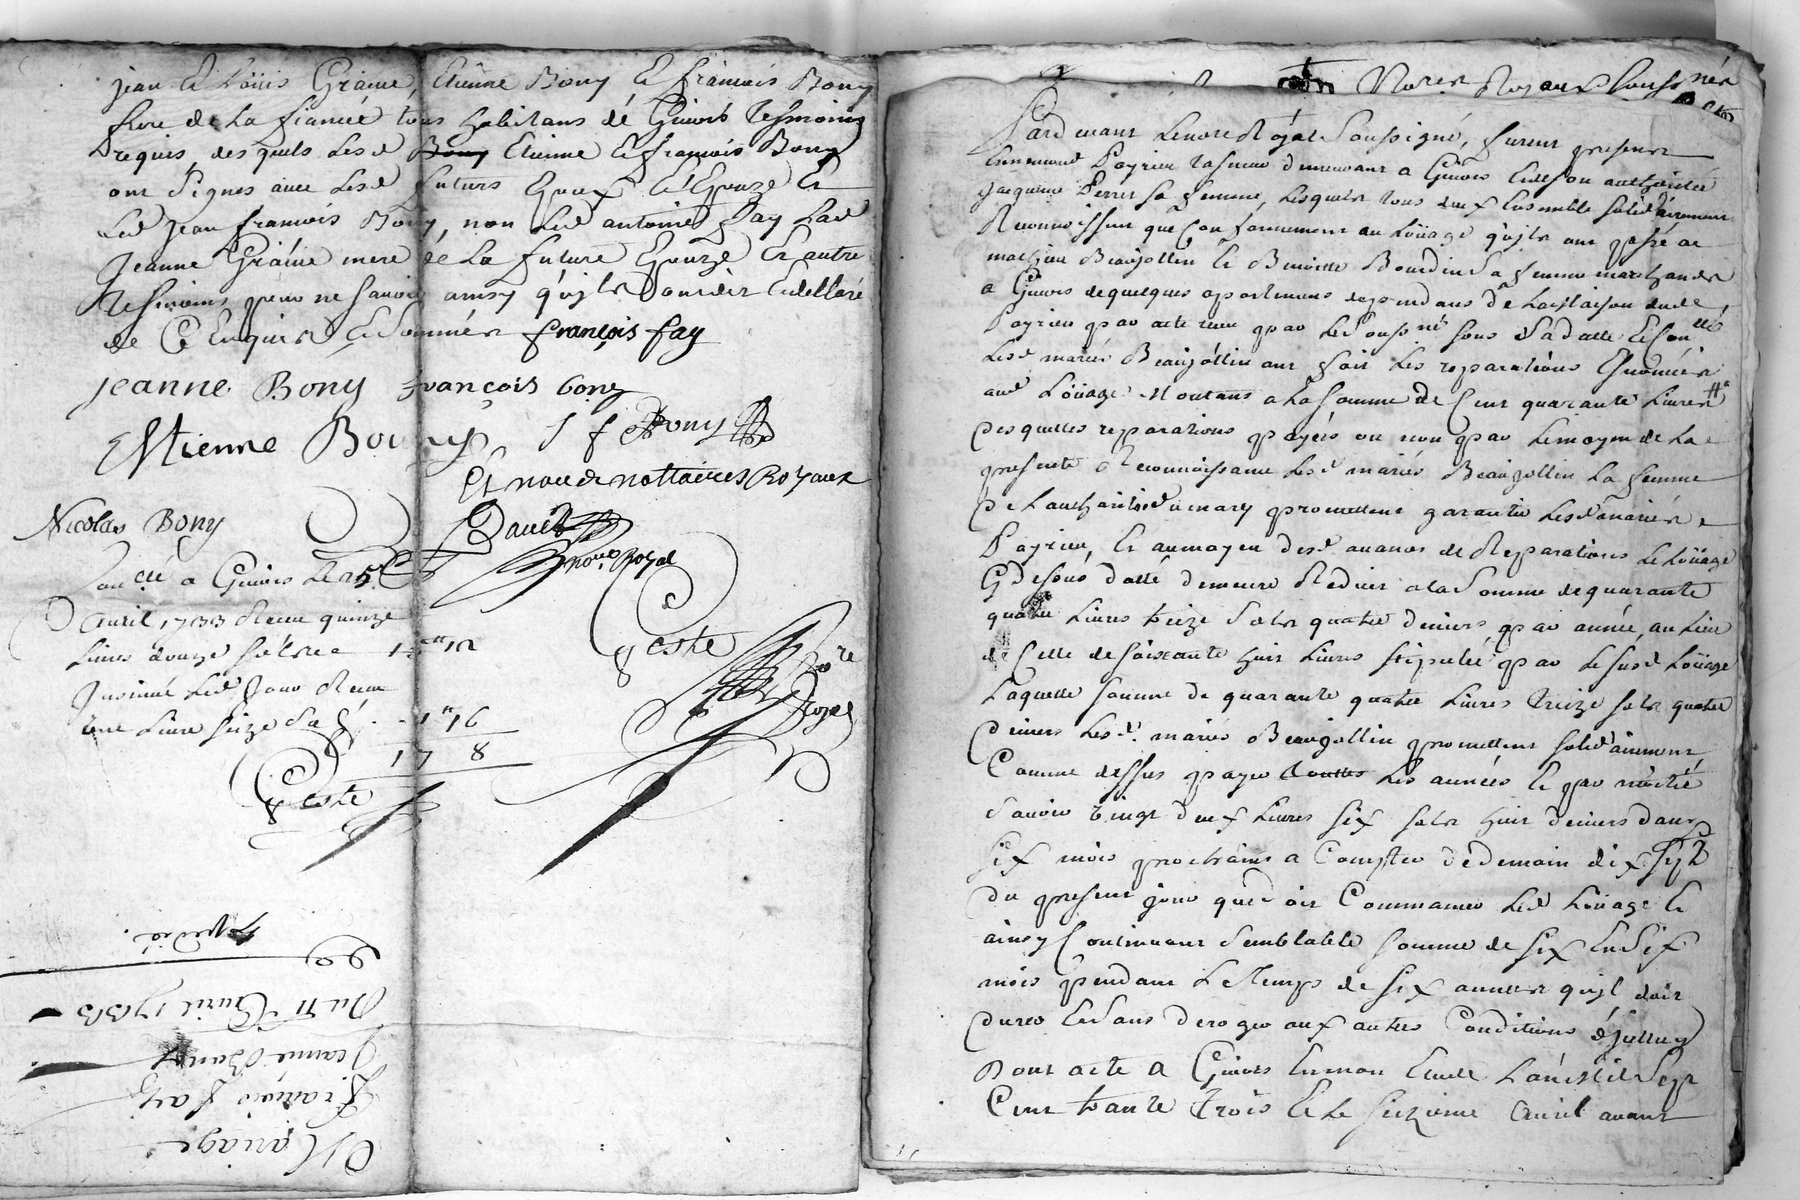 jean & Loüis Graine, Etienne Bony & françois Bony
frere de La fiancée tous habitans de Givors Tesmoins
requis, desquels Lesd Bony Etienne & françois Bony
ont signés avec Lesd futurs Epoux & Epouze Et
Led jean françois Bony, non Led antoine fay Lad
Jeanne Graine mere de La future Epouze Et autre
Tesmoins pour ne sçavoir ainsy qu'ils ont dit Et declaré
de ce Enquis & sommés françois fay
jeanne Bony françois bony
Estienne Bony J f Bony
Et nous nottaires Royaux
Nicolas Bony
Davet
no.re Royal
Con.lé a Givors Le 25e
avril 1733 Receu quinze
Livres douze sols 15 " 12
Insinué Led jour Receu
une Livre seize sols 1 " 16
17 8
Geste
Geste no.re Royal
Expedié.
99
Du 11 Avril 1733
Jeanne Bony
François fay
Mariage
No.res Royaux souss.nés
Pardevant Le no.re Royal soussigné, furent presents
Payrieu demeurant a Givors Et de son authorité
jacqueme Perret sa femme, Lesquels tous deux Ensemble solid.airement
Reconnoissent que conformement au Loüage qu'ils ont passé a
mathieu Beaujollin & Benoitte Bourdin sa femme marchands
a Givors de quelques apartemens dependans de La Maison dud
Payrieu par acte receu par Le souss.né sous sa datte
Lesd mariés Beaujollin ont fait Les reparations Enoncées
aud Loüage Montant a La somme de Cent quarante Livres
Desquelles reparations payées ou non par Le moyen de La
presente Reconnoissance Lesd mariés Beaujollin La femme
De L'authorité du mary promettent garantir Lesd mariés
Payrieu, Et au moyen desd avances de Reparations Le Loüage
Cy dessus datté demeure Reduit a La somme de quarante
quatre Livres treize sols quatre deniers par année, au Lieu
de Celle de soixante huit Livres stipulée par Le susd Loüage
Laquelle somme de quarante quatre Livres treize sols quatre
deniers Lesd. mariés Beaujollin promettent solid.airement
Comme dessus payer toutes Les années & par moitié
sçavoir vingt deux Livres six sols huit deniers dans
six mois prochains a Compter de demain dix sept
du present jour que doit Commancer Led Loüage &
ainsy Continuant semblable somme de six En six
mois pendant Le Temps de six années qu'il doit
durer Et sans deroger aux autres Conditions d'jcelluy
Dont acte a Givors En mon Etude L'an Mil sept
Cent trante Trois & Le seizieme avril avant